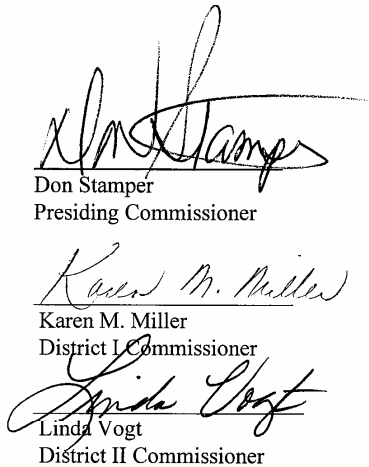 Don Stamper
Don Stamper
Presiding Commissioner
Karen M. Miller
Karen M. Miller
District I Commissioner
Linda Vogt
Linda Vogt
District II Commissioner